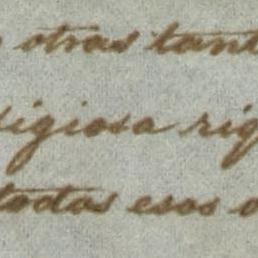 otras tant
ligiosa riq
todas esos